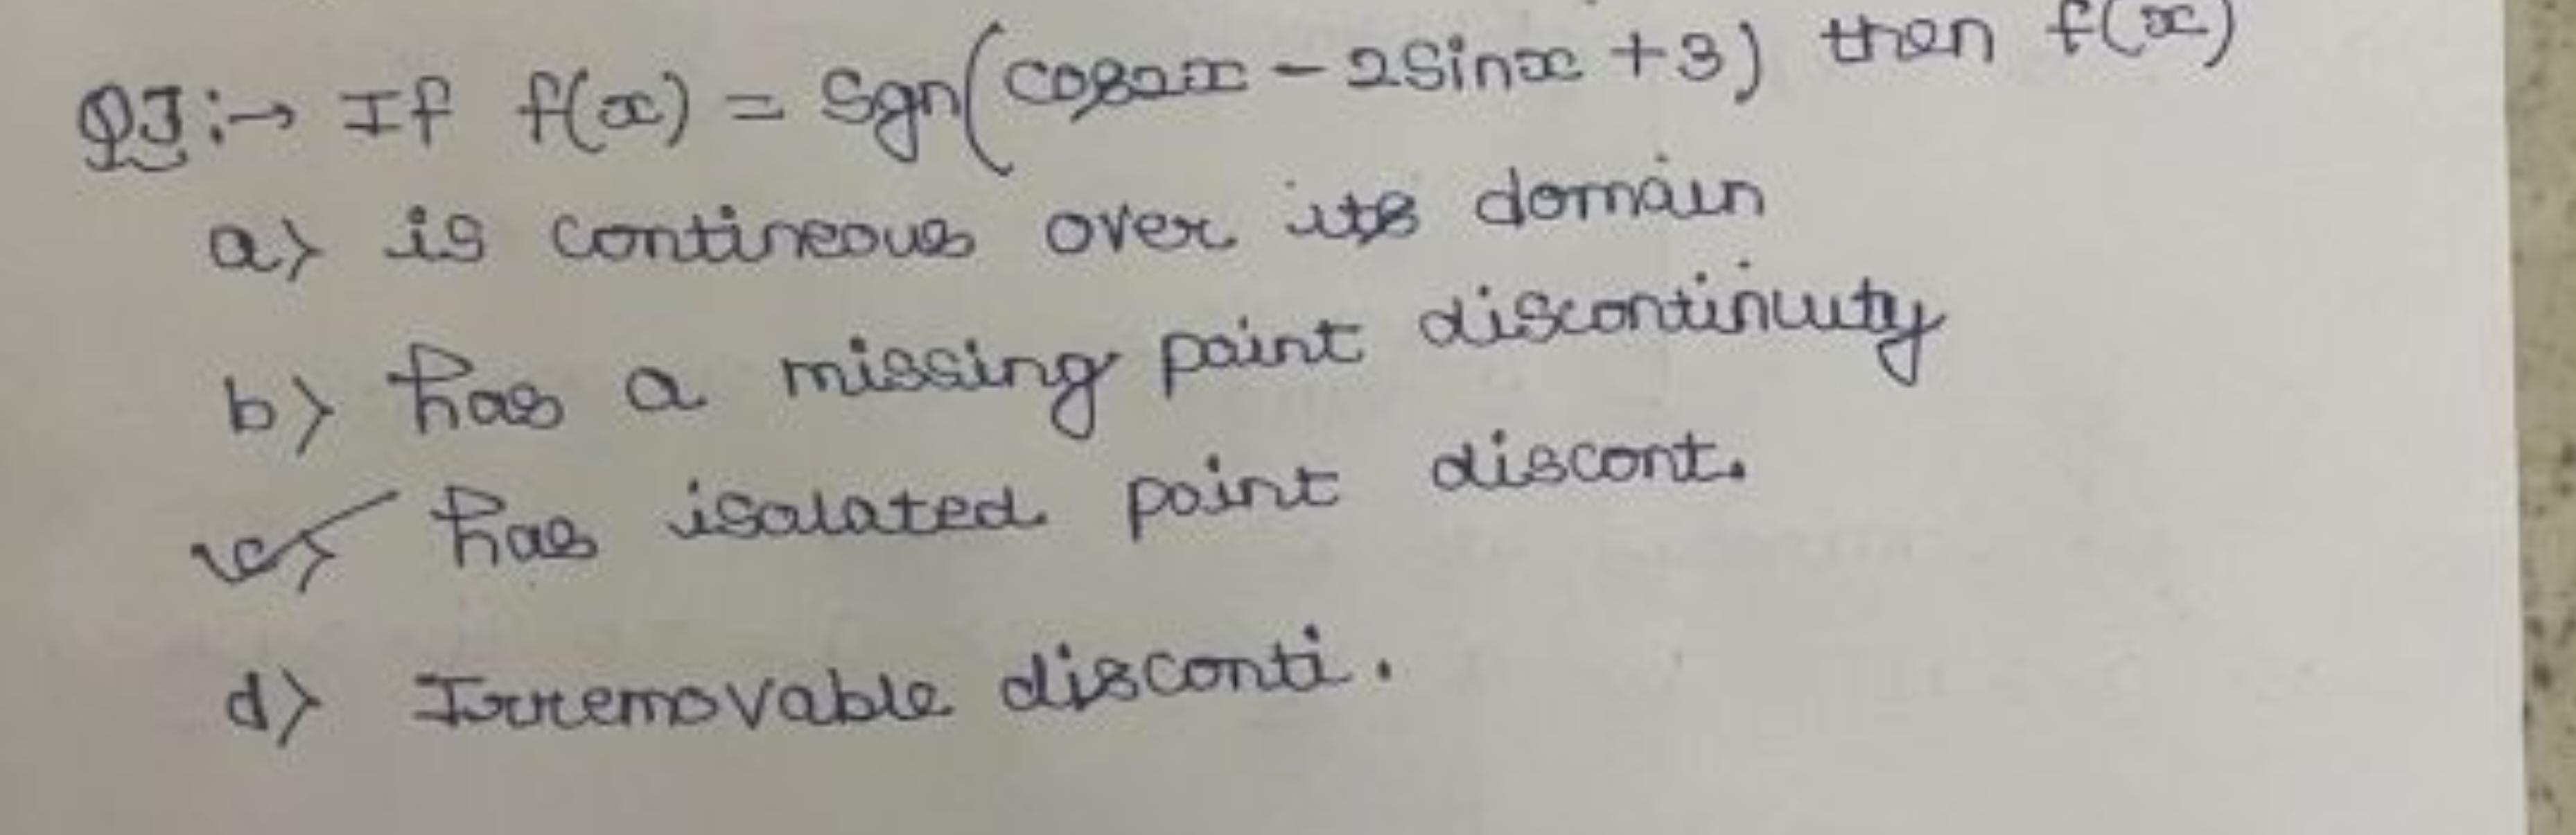 Q1:→ If f(x) = Sgn(cos2x - 2Sinx + 3) then f(x)
a> is contineous over its domain
b> has a missing point discontinuity
c> has isolated point discont.
d> Irremovable disconti.